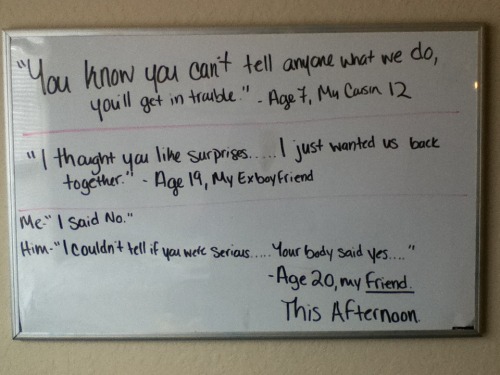 "You know you can't tell anyone what we do,
you'll get in trouble." - Age 7, My Cousin 12
"I thought you like surprises..... I just wanted us back
together." - Age 19, My Exboyfriend
Me-"I said No."
Him-"I couldn't tell if you were serious..... Your body said yes...."
-Age 20, my friend.
This Afternoon.